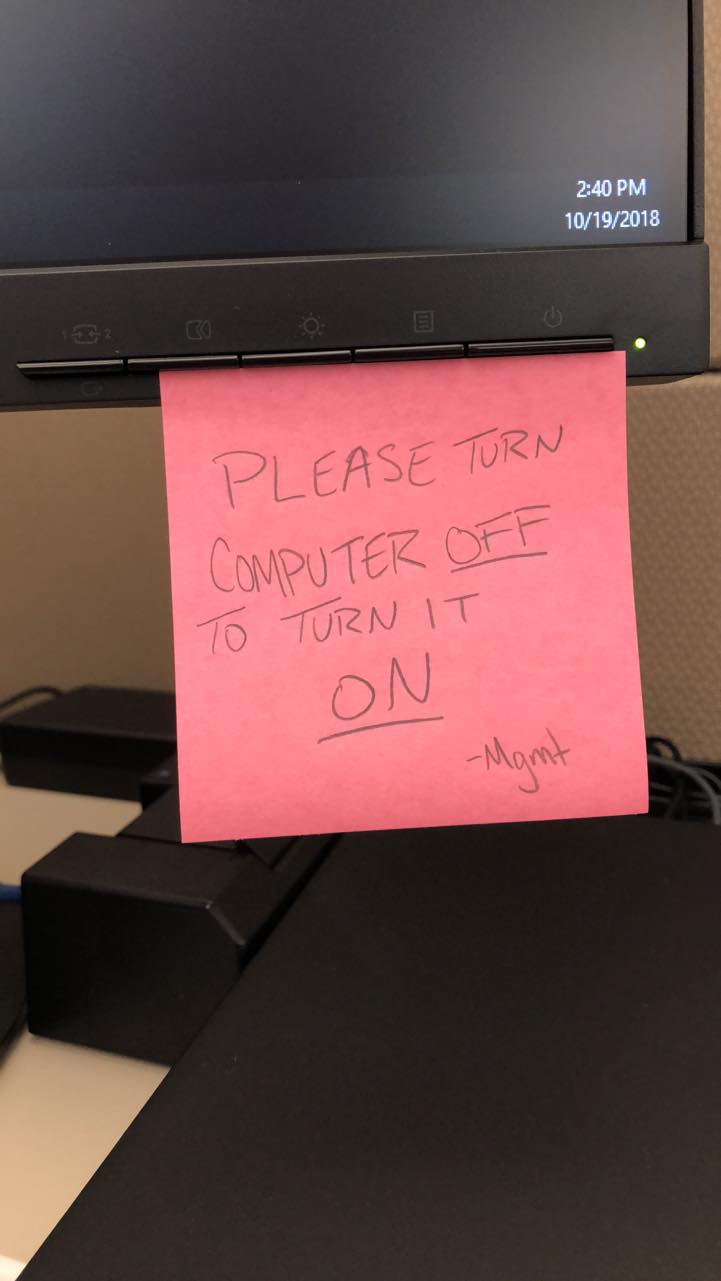 2:40 PM
10/19/2018
1 2
PLEASE TURN
COMPUTER OFF
TO TURN IT
ON
-Mgmt